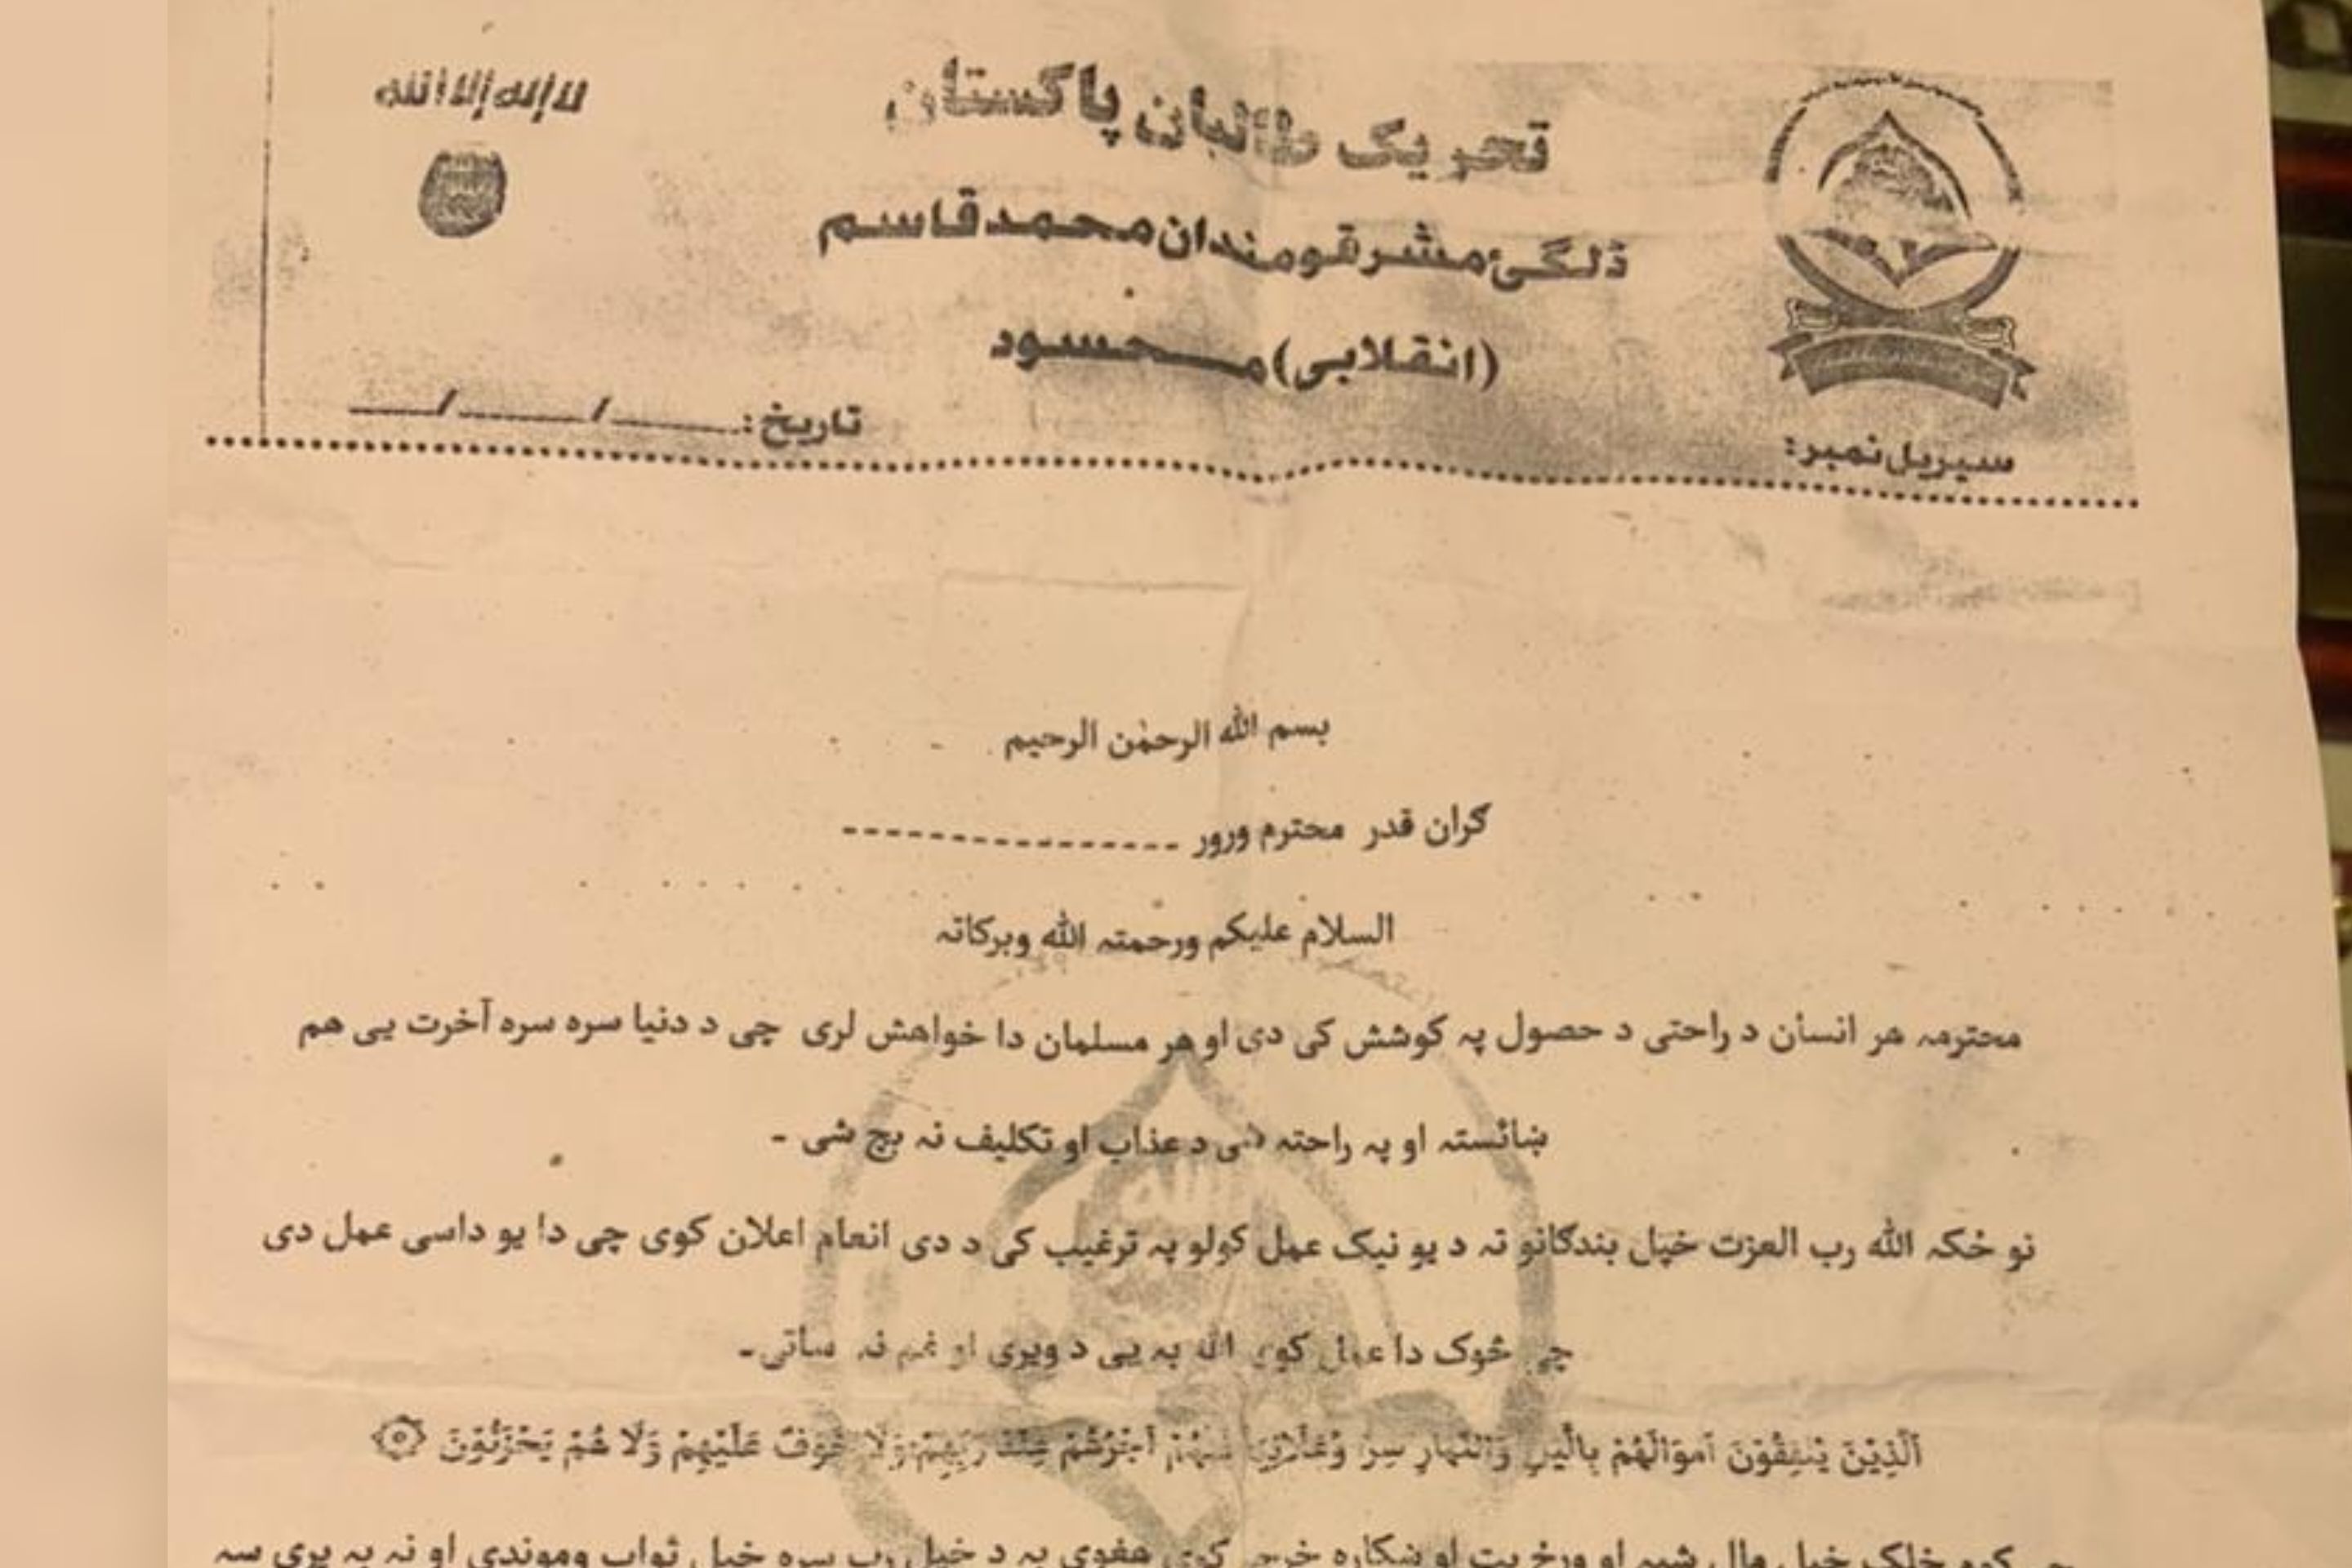 لا إله إلا الله
تحریک طالبان پاکستان
ډلګئ مشر قومندان محمد قاسم
(انقلابی) محسود
سیریل نمبر:
تاریخ: ____/____/____
بسم الله الرحمٰن الرحیم
ګران قدر محترم ورور ----------------
السلام علیکم ورحمتہ الله وبرکاتہ
محترمہ هر انسان د راحتی د حصول پہ کوشش کی دی او هر مسلمان دا خواهش لری چی د دنیا سره سره آخرت یی هم
ښائستہ او پہ راحتہ شی د عذاب او تکلیف نہ بچ شی -
نو ځکہ الله رب العزت خپل بندګانو تہ د یو نیک عمل کولو پہ ترغیب کی د دی انعام اعلان کوی چی دا یو داسی عمل دی
چی څوک دا عمل کوی الله بہ یی د ویری او غم نہ ساتی-
اَلَّذِیْنَ یُنْفِقُوْنَ اَمْوَالَهُمْ بِالَّیْلِ وَالنَّهَارِ سِرًّ وَّعَلَانِیَةً فَلَهُمْ اَجْرُهُمْ عِنْدَ رَبِّهِمْ وَلَا خَوْفٌ عَلَیْهِمْ وَلَا هُمْ یَحْزَنُوْنَ
چی کوم خلک خپل مال شپہ او ورځ پټ او ښکاره خرچ کوی هغوی بہ د خپل رب سره خپل ثواب ومومندی او نہ بہ پری سہ